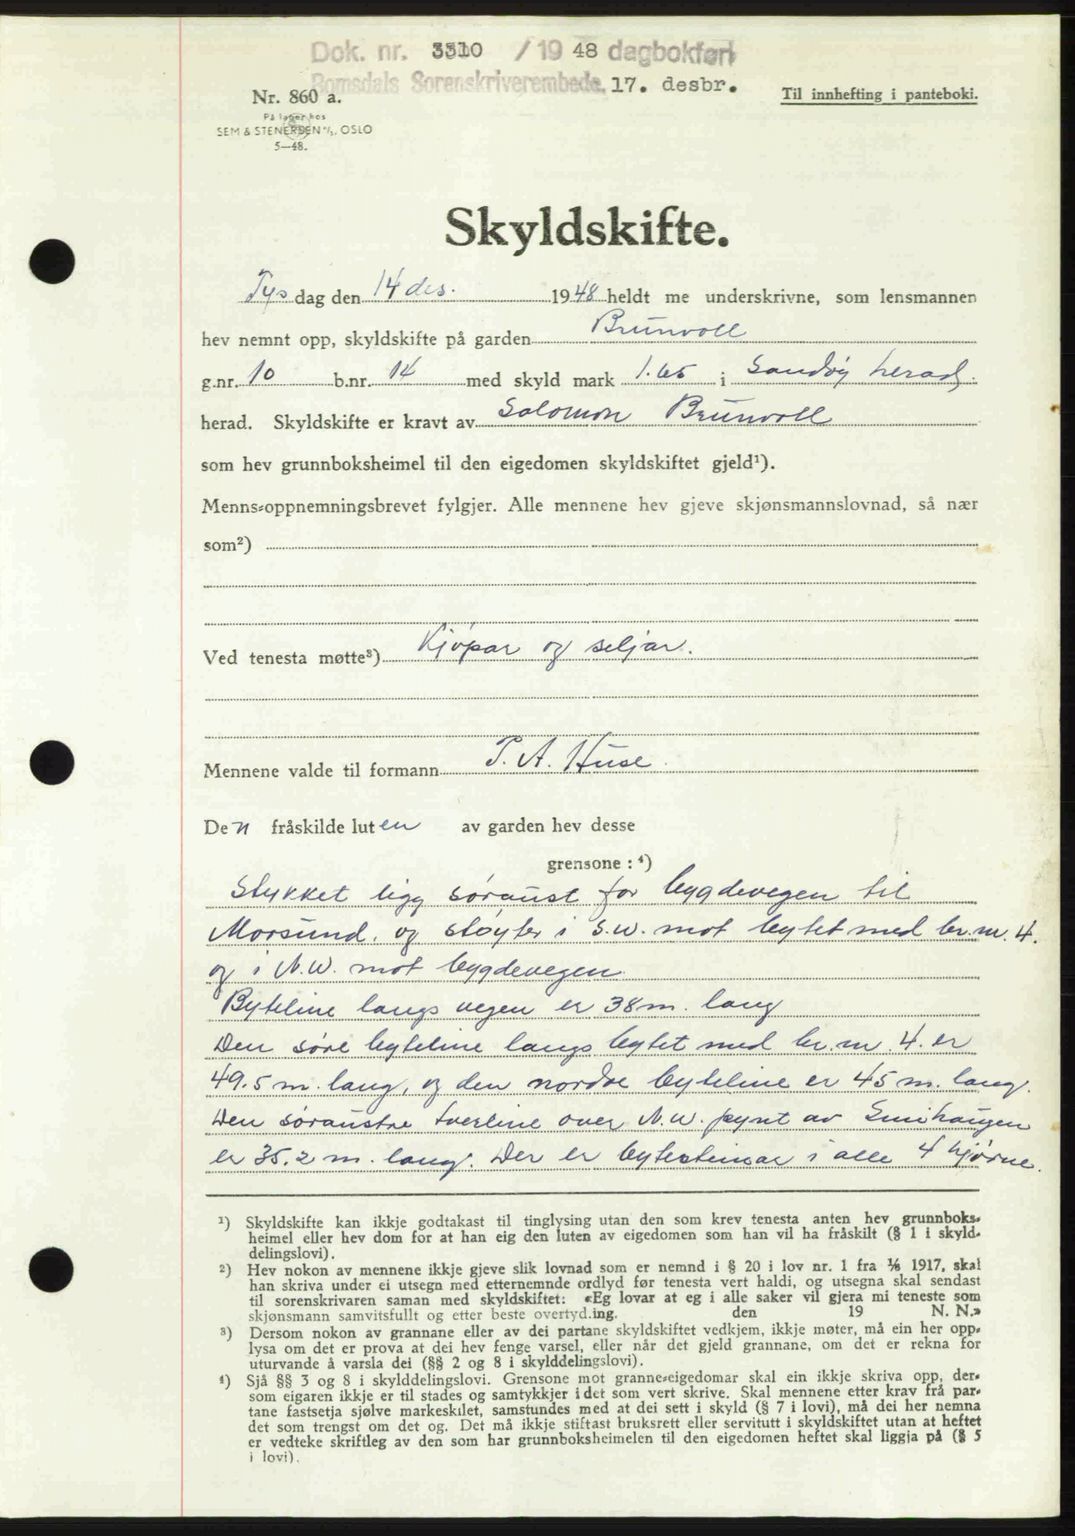 Dok. nr. 3310 / 19 48 dagbokført
Romsdals Sorenskriverembede, 17. desbr.
Nr. 860 a.
Til innhefting i panteboki.
På lager hos
SEM & STENERSEN A/S, OSLO
5—48.
Skyldskifte.
Tys dag den 14 des. 1948 heldt me underskrivne, som lensmannen
hev nemnt opp, skyldskifte på garden Brunvoll
g.nr. 10 b.nr. 14 med skyld mark 1.65 i Sandøy herad
herad. Skyldskifte er kravt av Salomon Brunvoll
som hev grunnboksheimel til den eigedomen skyldskiftet gjeld¹).
Menns-oppnemningsbrevet fylgjer. Alle mennene hev gjeve skjønsmannslovnad, så nær
som²)
Ved tenesta møtte³) Kjøpar og seljar.
Mennene valde til formann P. A. Huse
Den fråskilde luten av garden hev desse
grensone : ⁴)
Stykket ligg søraust for bygdevegen til
Morsund, og støyter i S.W. mot bytet med br.nr. 4.
og i N.W. mot bygdevegen.
Byteline langs vegen er 38 m. lang
Den søre byteline langs bytet med br.nr. 4. er
49.5 m. lang, og den nordre byteline er 45 m. lang.
Den søraustre tverline over N.W. pynt av Smihaugen
er 35.2 m. lang. Der er bytesteinar i alle 4 hjørne.
¹) Skyldskifte kan ikkje godtakast til tinglysing utan den som krev tenesta anten hev grunnboks-
heimel eller hev dom for at han eig den luten av eigedomen som han vil ha fråskilt (§ 1 i skyld-
delingslovi).
²) Hev nokon av mennene ikkje gjeve slik lovnad som er nemnd i § 20 i lov nr. 1 fra ¹⁄₆ 1917, skal
han skriva under ei utsegn med etternemnde ordlyd før tenesta vert haldi, og utsegna skal sendast
til sorenskrivaren saman med skyldskiftet: «Eg lovar at eg i alle saker vil gjera mi teneste som
skjønsmann samvitsfullt og etter beste overtyding. den 19 N. N.»
³) Dersom nokon av grannane eller av dei partane skyldskiftet vedkjem, ikkje møter, må ein her opp-
lysa om det er prova at dei hev fenge varsel, eller når det gjeld grannane, om det er rekna for
uturvande å varsla dei (§§ 2 og 8 i skylddelingslovi).
⁴) Sjå §§ 3 og 8 i skylddelingslovi. Grensone mot granne-eigedomar skal ein ikkje skriva opp, der-
som eigaren ikkje er til stades og samtykkjer i det som vert skrive. Skal mennene etter krav frå par-
tane fastsetja sjølve markeskilet, samstundes med at dei sett i skyld (§ 7 i lovi), må dei her nemna
det som trengst om det og. Det må ikkje stiftast bruksrett eller servitutt i skyldskiftet utan at heftet
er vedteke skriftleg av den som har grunnboksheimelen til den eigedomen heftet skal liggja på (§ 5
i lovi).